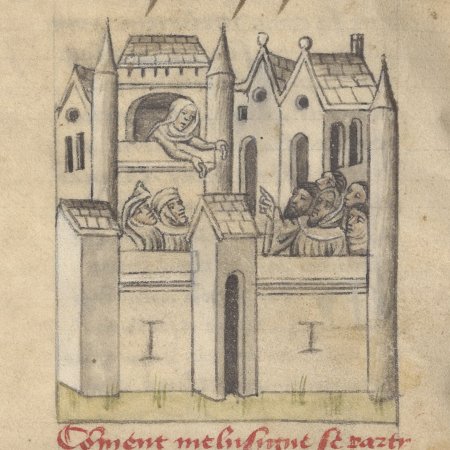 Cõment melusigne se party